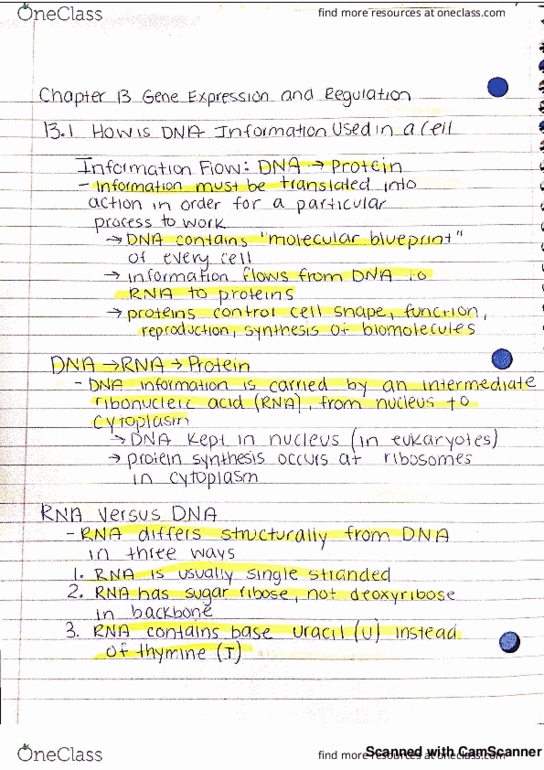 OneClass
find more resources at oneclass.com
Chapter 13 Gene Expression and Regulation
13.1 How is DNA Information Used in a Cell
Information Flow: DNA → Protein
- Information must be translated into
action in order for a particular
process to work
→ DNA contains "molecular blueprint"
of every cell
→ information flows from DNA to
RNA to proteins
→ proteins control cell shape, function,
reproduction, synthesis of biomolecules
DNA → RNA → Protein
- DNA information is carried by an intermediate
ribonucleic acid (RNA), from nucleus to
cytoplasm
→ DNA kept in nucleus (in eukaryotes)
→ protein synthesis occurs at ribosomes
in cytoplasm
RNA Versus DNA
- RNA differs structurally from DNA
in three ways
1. RNA is usually single stranded
2. RNA has sugar ribose, not deoxyribose
in backbone
3. RNA contains base uracil (U) instead
of thymine (T)
OneClass
find more resources at oneclass.com
Scanned with CamScanner